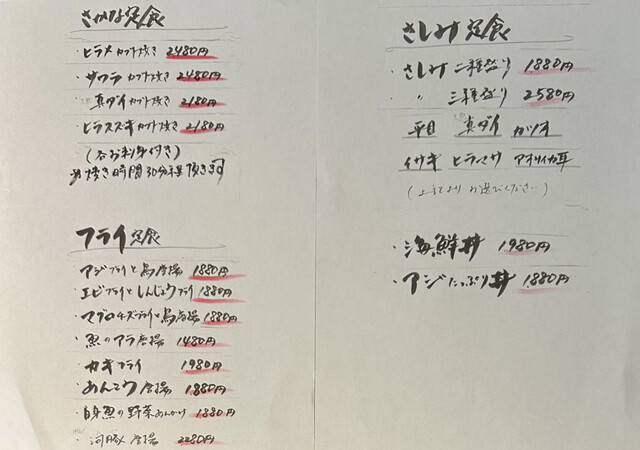 さかな定食
・ヒラメカブト焼き 2480円
・サワラカブト焼き 2480円
・真ダイカブト焼き 2180円
・ヒラスズキカブト焼き 2180円
(各お刺身付き)
※焼き時間30分程頂きます
フライ定食
・アジフライと鳥唐揚 1880円
・エビフライとしんじょうフライ 1880円
・マグロチーズフライと鳥唐揚 1880円
・魚のアラ唐揚 1480円
・カキフライ 1980円
・あんこう唐揚 1880円
・白身魚の野菜あんかけ 1880円
・河豚唐揚 2280円
さしみ定食
・さしみ二種盛り 1880円
・〃 三種盛り 2580円
平目 真ダイ カツオ
イサキ ヒラマサ アオリイカ耳
(上記よりお選びください)
・海鮮丼 1980円
・アジたっぷり丼 1880円